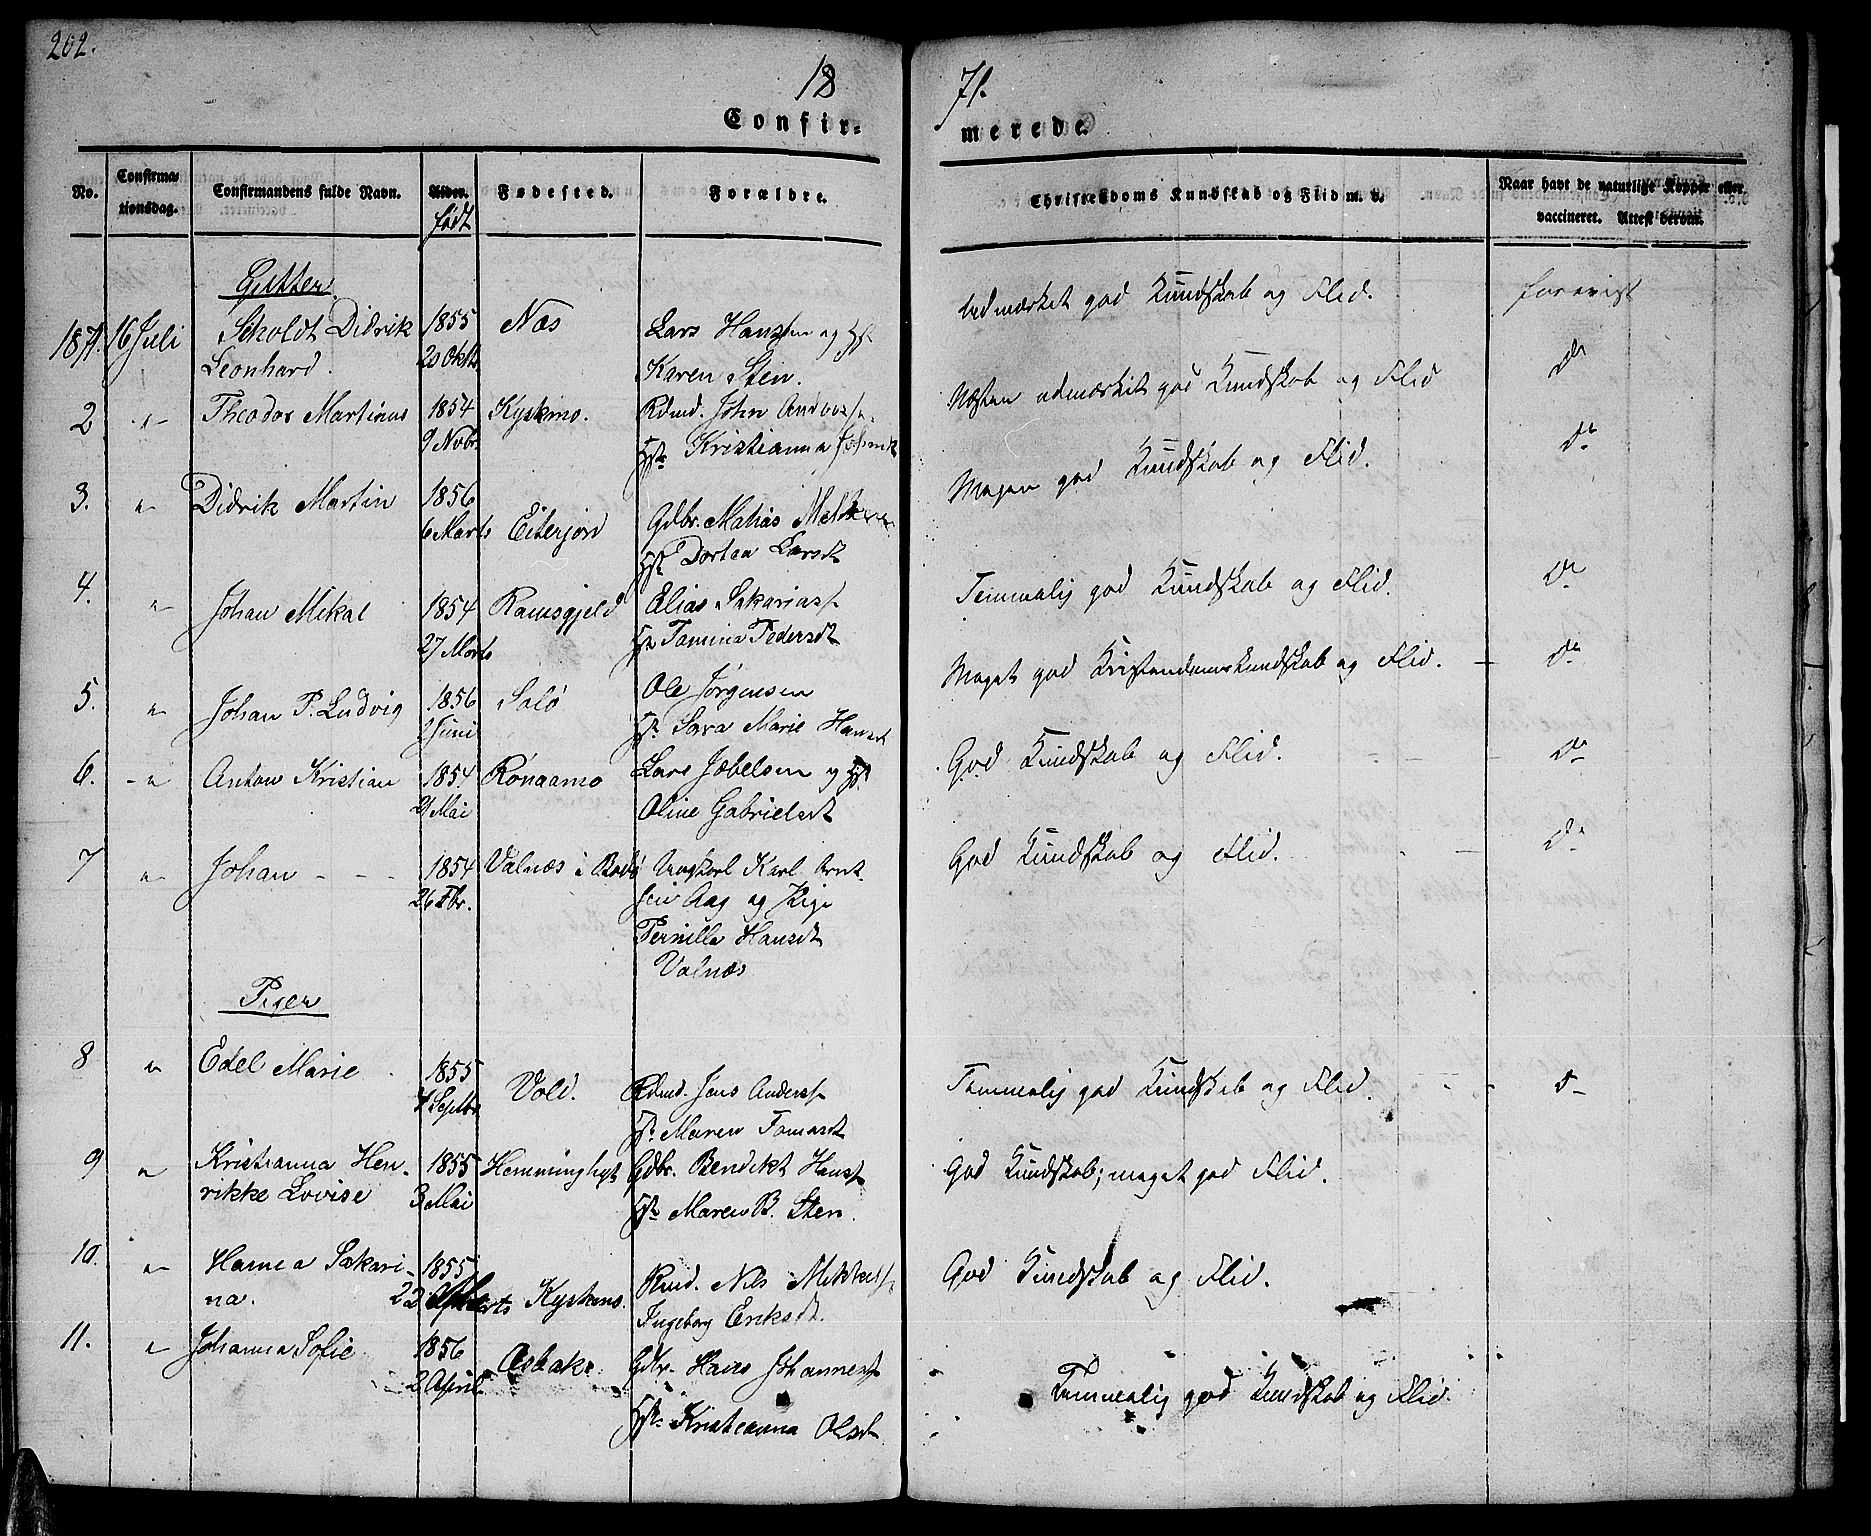 202.
18 71.
Confir= merede.
No.
Confirma
tionsdag.
Confirmandens fulde Navn.
Alder.
født
Fødested.
Forældre.
Christendoms Kundskab og Flid m. v.
Naar havt de naturlige Kopper eller
vaccineret. Attest derom.
Gutter
1871. 16 Juli Didrik 1855 Næs Lars Hansen og Hst
Leonhard. 20 Oktb. Karen Sten.
udmærket god Kundskab og Flid. forevist
2 -"- Theodor Martinus 1854 Kyskmo. Rdmd. John Anders
9 Novbr. Hst. Kristianna
Næsten udmærket god Kundskab og Flid Do
3. " Didrik Martin 1856
6 Marts Eiterjord Gdbr. Matias
Hst. Dortea Larsdt
Megen god Kundskab og Flid. Do
4. " Johan Mikal 1854 Ramsgjeld Elias Sakarias
27 Marts Hst. Tomina Pedersdt
Temmelig god Kundskab og Flid. Do
5. " Johan P. Ludvig 1856 Salø Ole Jørgensen
2 Juni Hst. Sara Marie Hansdt
Meget god Kristendomskundskab og Flid. - Do
6. -" Anton Kristian 1854 Rönaamo Lars Jobelsen og Hst.
21 Mai Oline Gabrielsdt
God Kundskab og Flid. Do
7 " Johan - - - 1854 Valnæs i Bodø Ungkarl Karl Arnt
26 Fbr. sen Aag og Pige
Pernille Hansdt
Valnæs
God Kundskab og Flid. Do
Piger
8 " Edel Marie 1855 Vold. Rdmd. Jens Anders
4 Septbr. Hst. Maren Tomasdt
Temmelig god Kundskab og Flid. D-
9 " Kristianna Hen- 1855 Hemminghyt Gdbr. Bendikt Hans
rikke Lovise 3 Mai Hst. Maren B. Sten.
God Kundskab; meget god Flid.
10. " Hanna Sakari- 1855
na. 22 Marts Kyskmo. Rmd. Nils Mikkels
Ingeborg Eriksdt.
God Kundskab og Flid.
11. " Johanna Sofie 1856
2 April Osbakk Gdbr. Hans Johannes
Hst. Kristianna Olsdt
Temmelig god Kundskab og Flid.